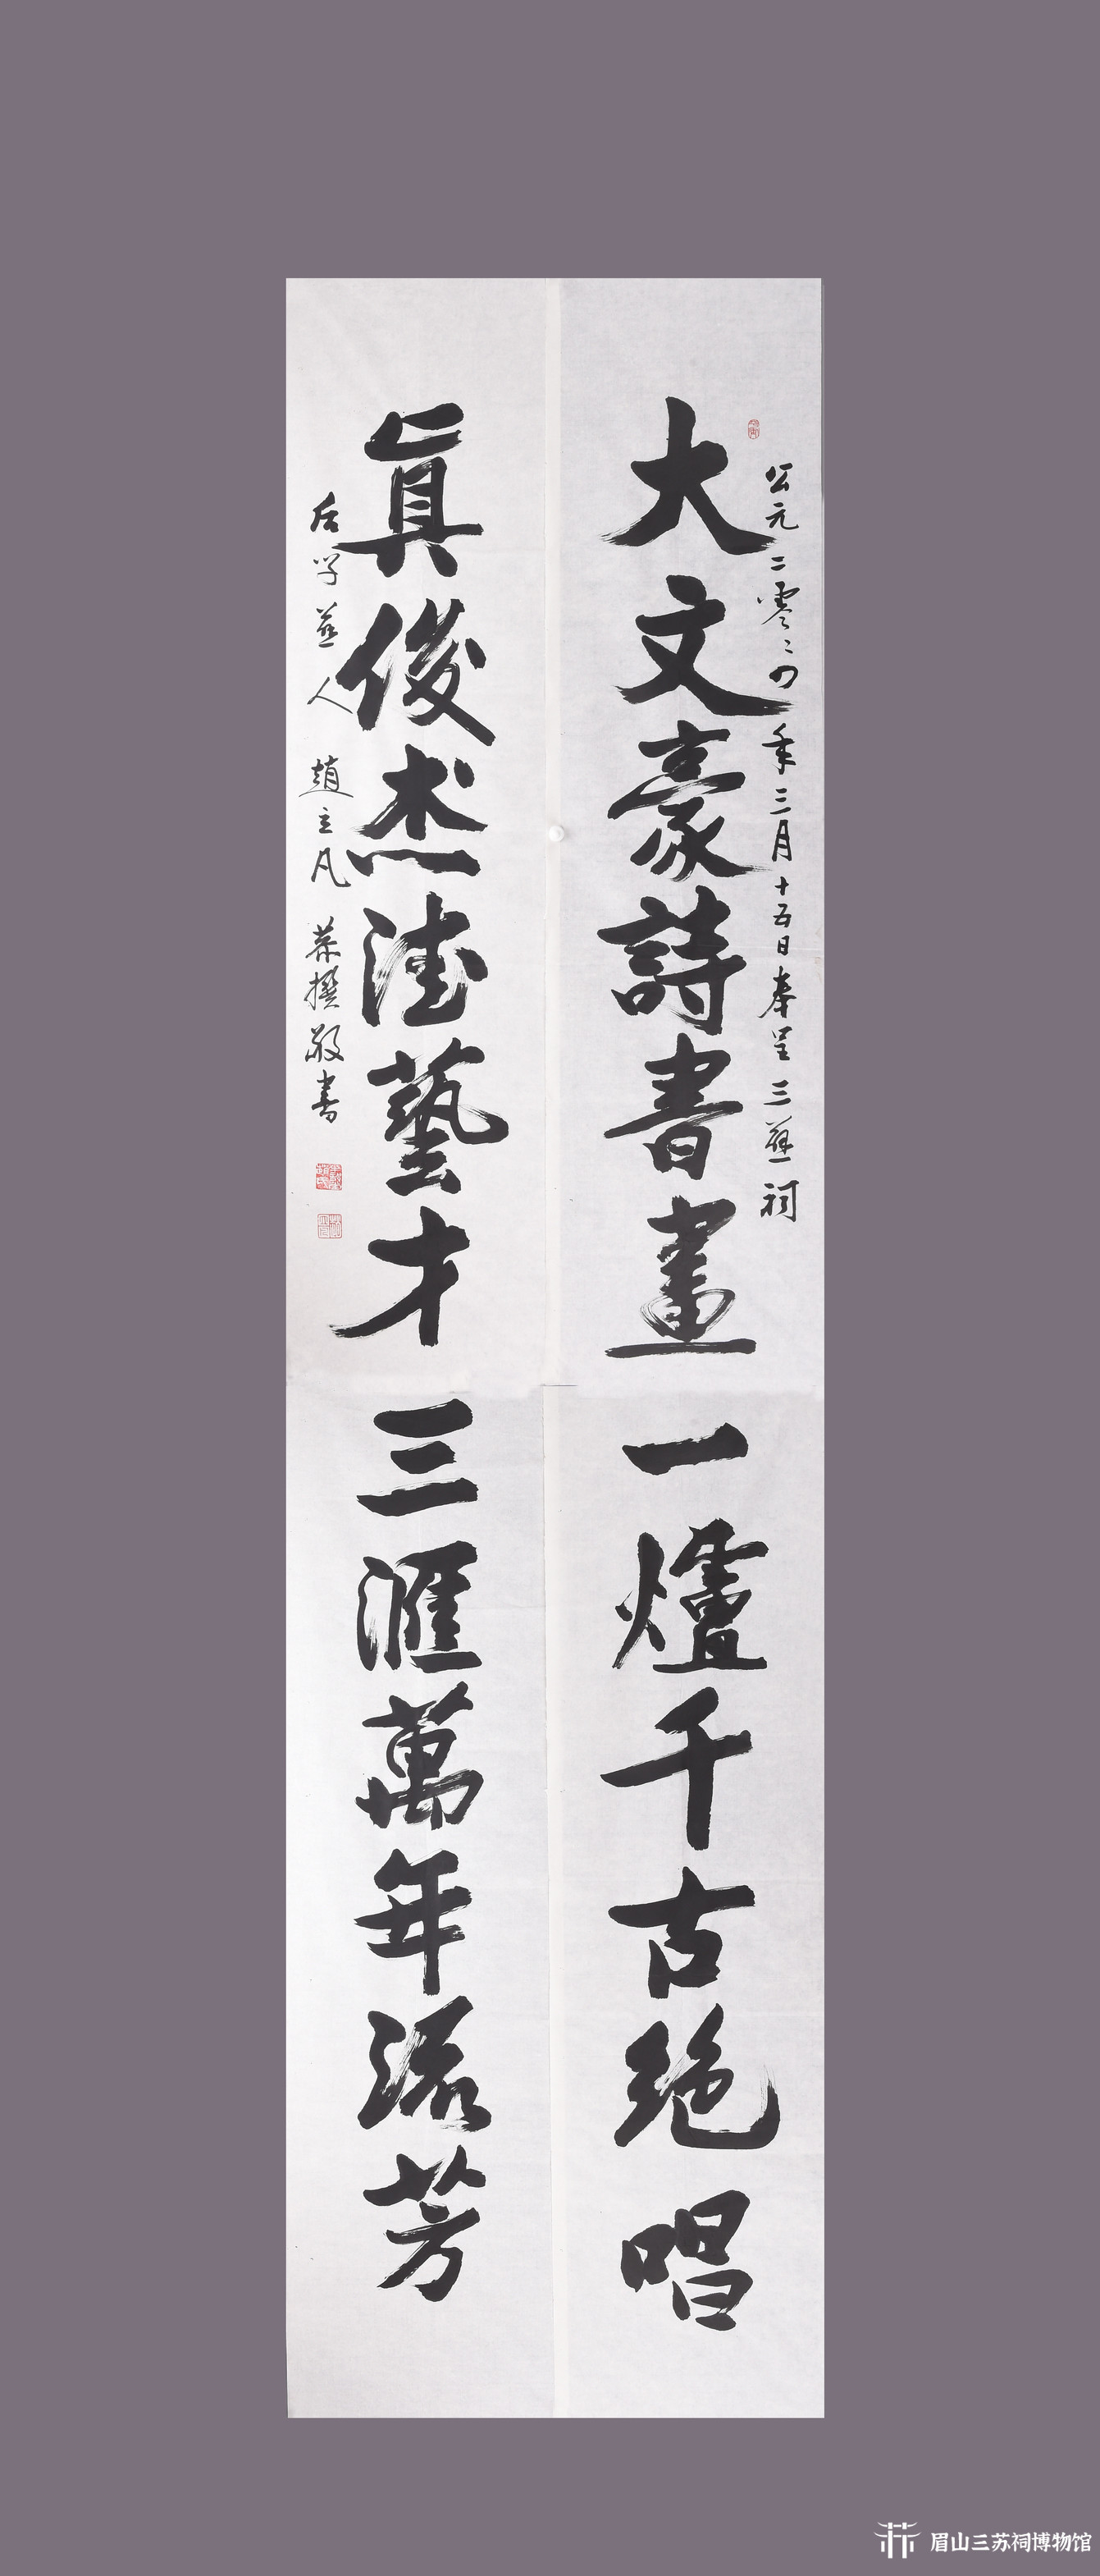 公元二零二四年三月十五日奉呈三蘇祠
大文豪詩書畫一爐千古絶唱
眞俊杰德藝才三滙萬年流芳
后学燕人 趙立凡 恭撰敬書
眉山三苏祠博物馆